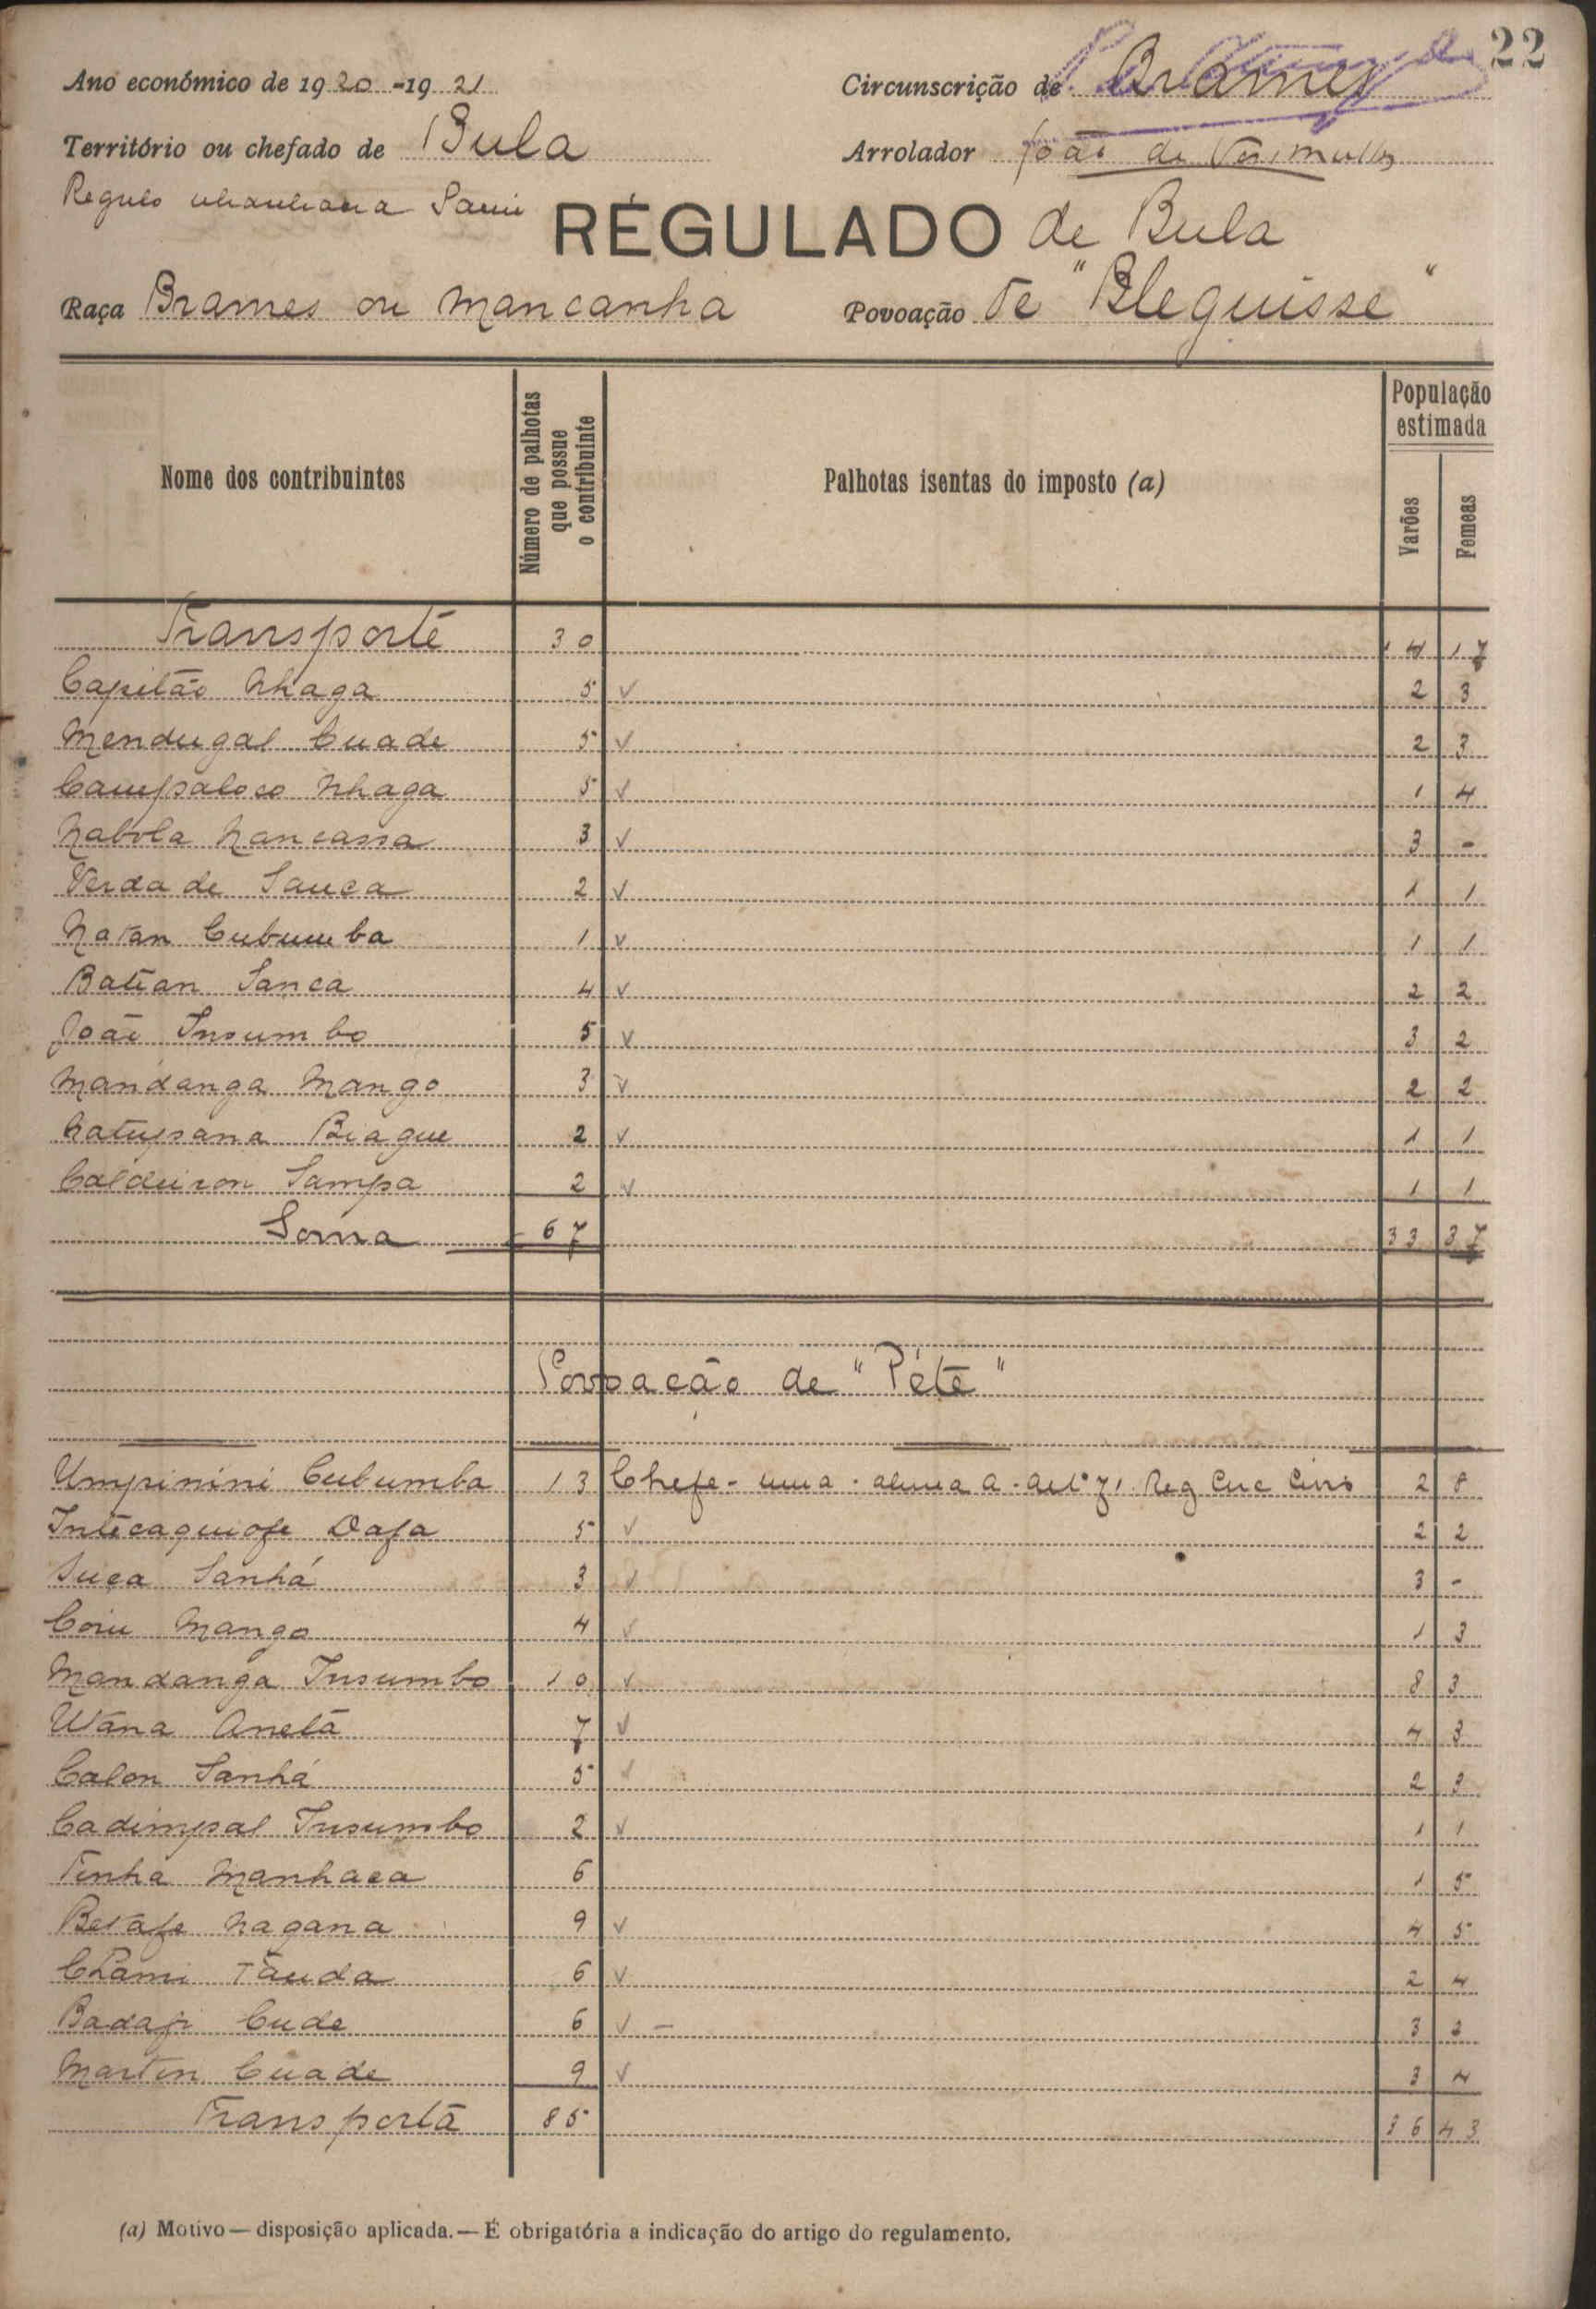 22
Ano económico de 1920-1921
Circunscrição de Brames
Território ou chefado de Bula
Arrolador João de
Regulo
REGULADO de Bula
Raça Brames ou Mancanha
Povoação De "Bleguisse"
Nome dos contribuintes
Número de palhotas que possue o contribuinte
Palhotas isentas do imposto (a)
População estimada
Varões
Femeas
Transporte 30 14 17
Capitão Nhaga 5 v 2 3
Mendugal Cuade 5 v 2 3
Nhaga 5 v 1 4
Nabola Nancassa 3 v 3 -
Verdade Sanca 2 v 1 1
Natan Cubumba 1 v 1 1
Batian Sanca 4 v 2 2
João Insumbo 5 v 3 2
Mandanga Mango 3 v 2 2
Natupana Biague 2 v 1 1
Caldeiron Sampa 2 v 1 1
Soma 67 33 37
Povoacão de "Péte"
Umpinini Cubumba 13 Chefe - uma - alinea a - artº 71 Reg Circ Civis 2 8
Dafa 5 v 2 2
Suca Sanhá 3 v 3 -
Coiu Mango 4 v 1 3
Mandanga Insumbo 10 v 8 3
Utana Anetá 7 v 4 3
Calon Sanhá 5 v 2 3
Cadimpal Insumbo 2 v 1 1
Tenha Manhaca 6 1 5
Betafe Nagana 9 v 4 5
Tauda 6 v 2 4
Badafi Cude 6 v - 3 2
Martin Cuade 9 v 3 4
Transporta 85 36 43
(a) Motivo — disposição aplicada. — É obrigatória a indicação do artigo do regulamento.